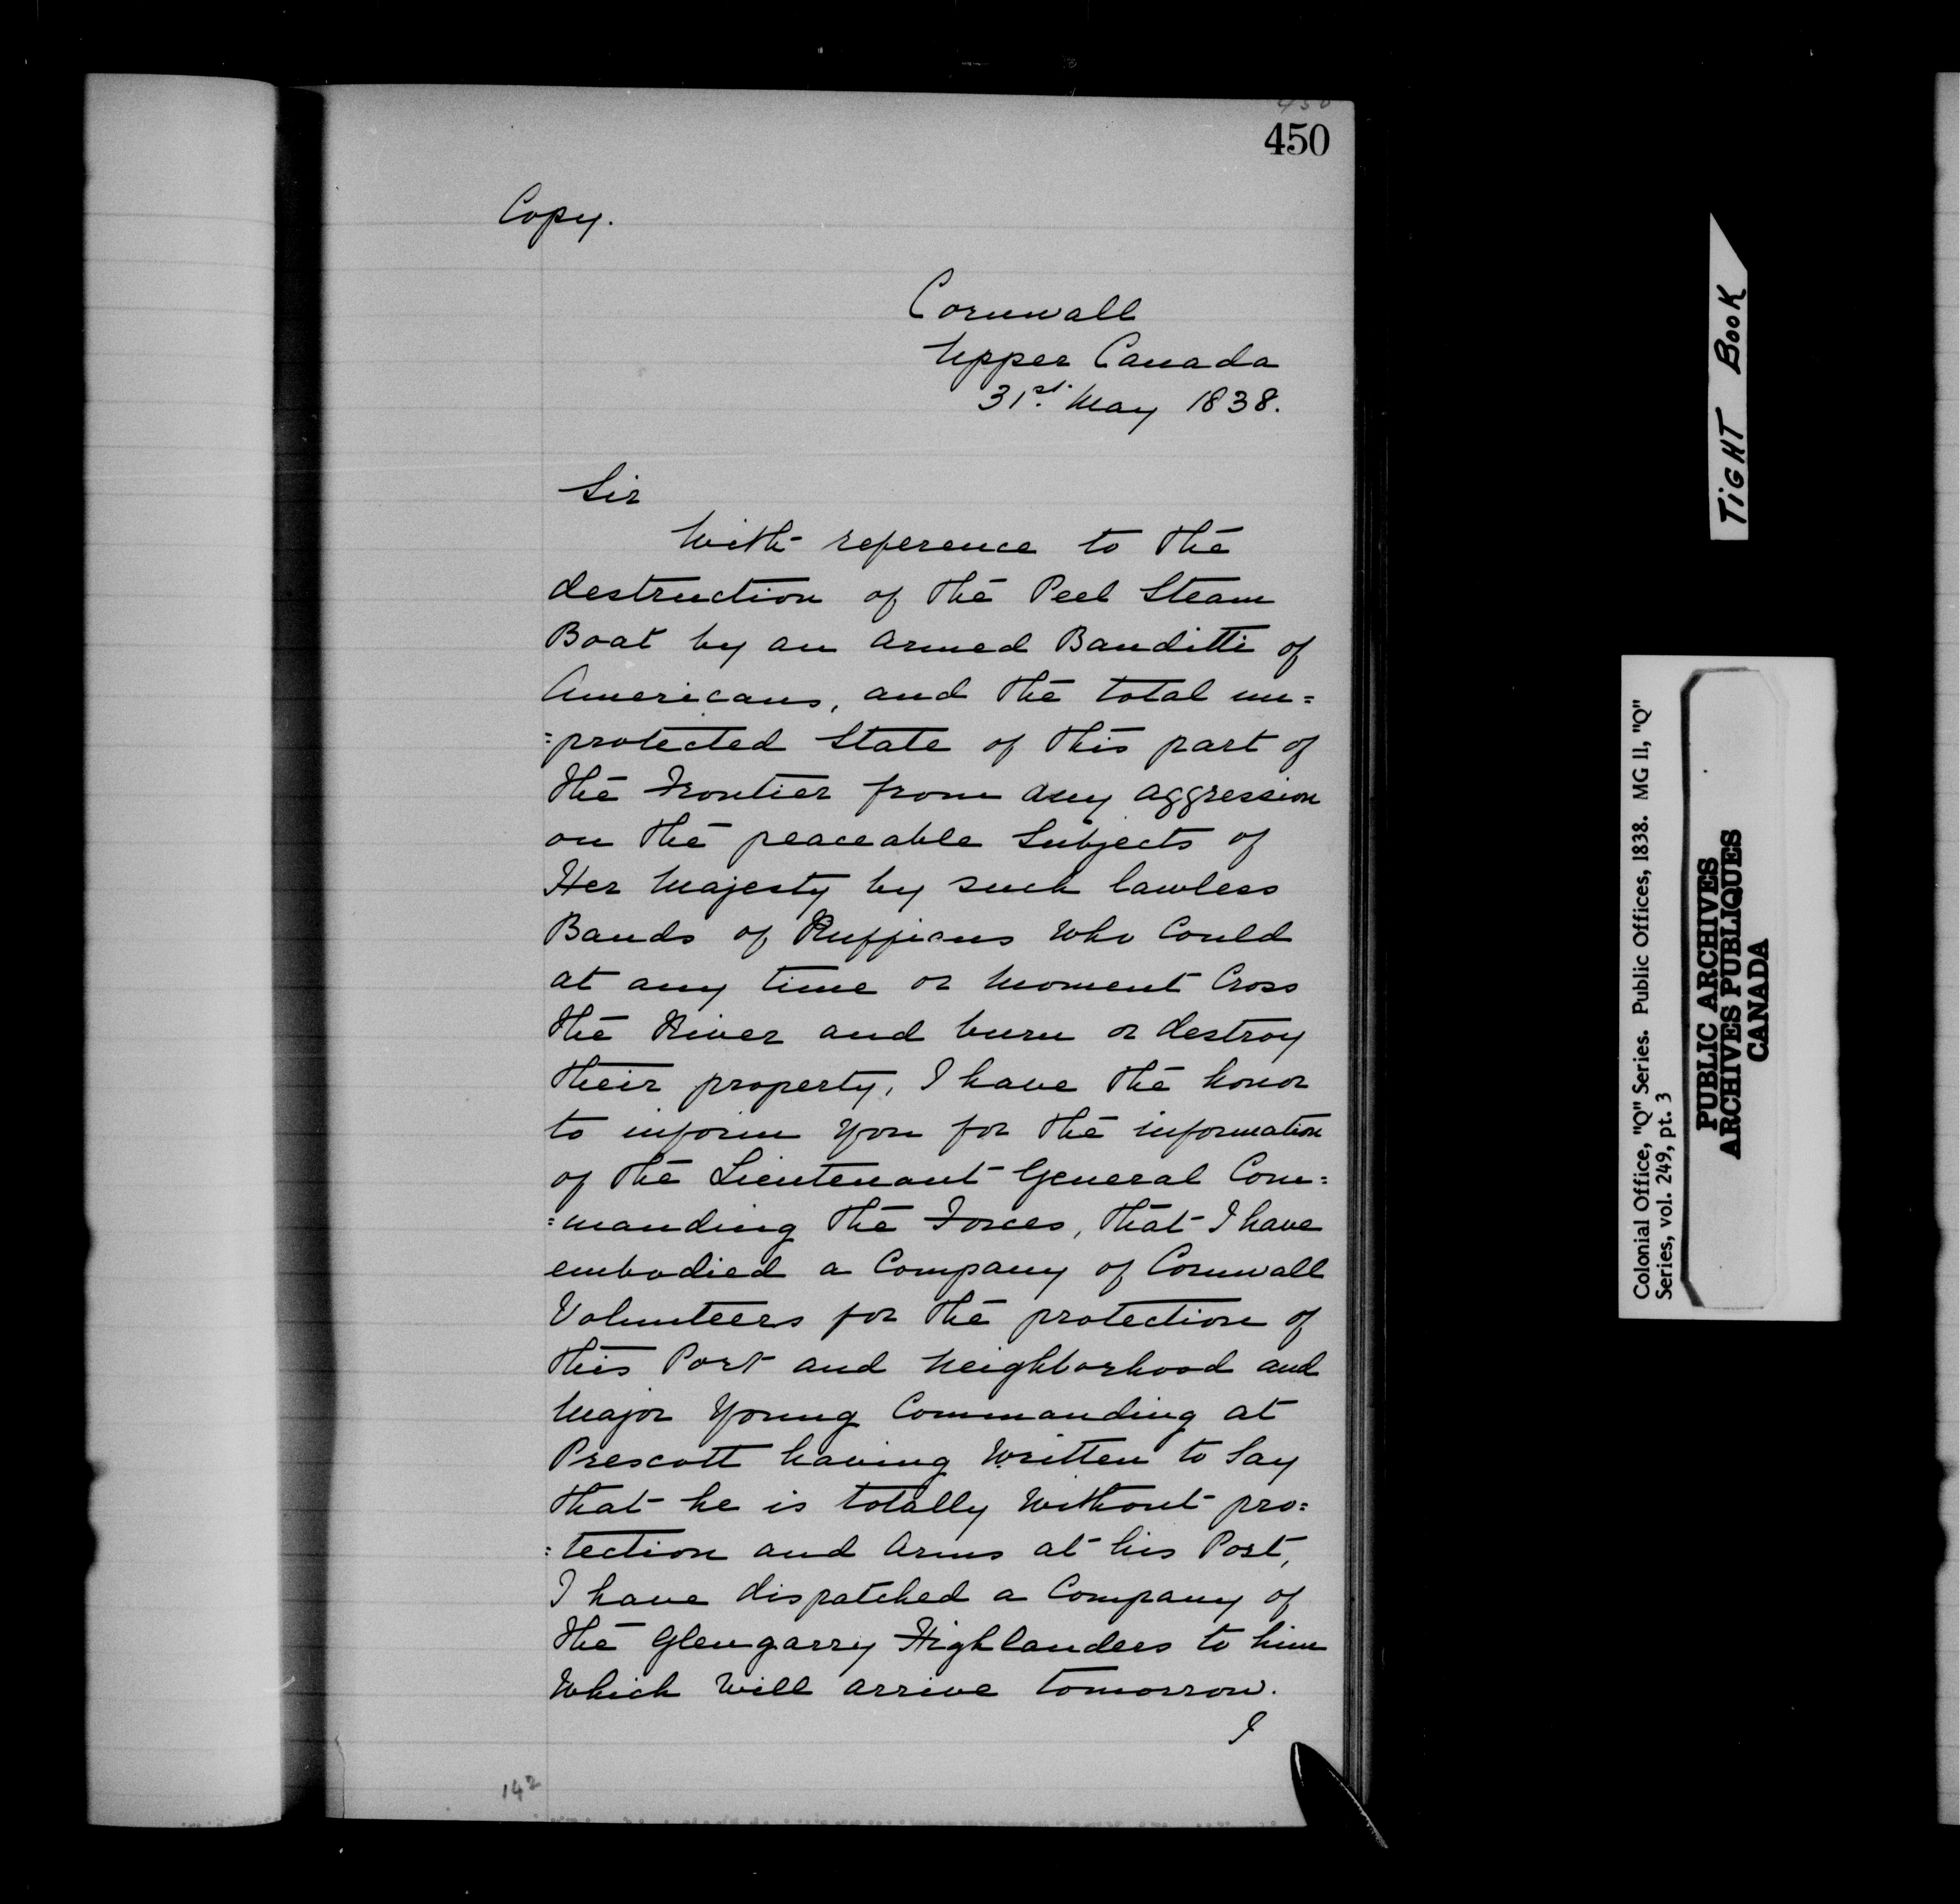 450
450
Copy.
Cornwall
Upper Canada
31st. May 1838.
Sir
With reference to the
destruction of the Peel Steam
Boat by an armed Banditti of
Americans, and the total un=
=protected State of this part of
the Frontier from any aggression
on the peaceable Subjects of
Her Majesty by such lawless
Bands of Ruffians who Could
at any time or Moment Cross
the River and burn or destroy
their property, I have the honor
to inform you for the information
of the Lieutenant General Com=
=manding the Forces, that I have
embodied a Company of Cornwall
Volunteers for the protection of
this Port and Neighborhood and
Major Young Commanding at
Prescott having Written to Say
that he is totally Without pro=
=tection and Arms at his Post,
I have dispatched a Company of
the Glengarry Highlanders to him
Which Will arrive tomorrow.
I
142
TiGHT BooK
Colonial Office, "Q" Series. Public Offices, 1838. MG 11, "Q"
Series, vol. 249, pt. 3
PUBLIC ARCHIVES
ARCHIVES PUBLIQUES
CANADA